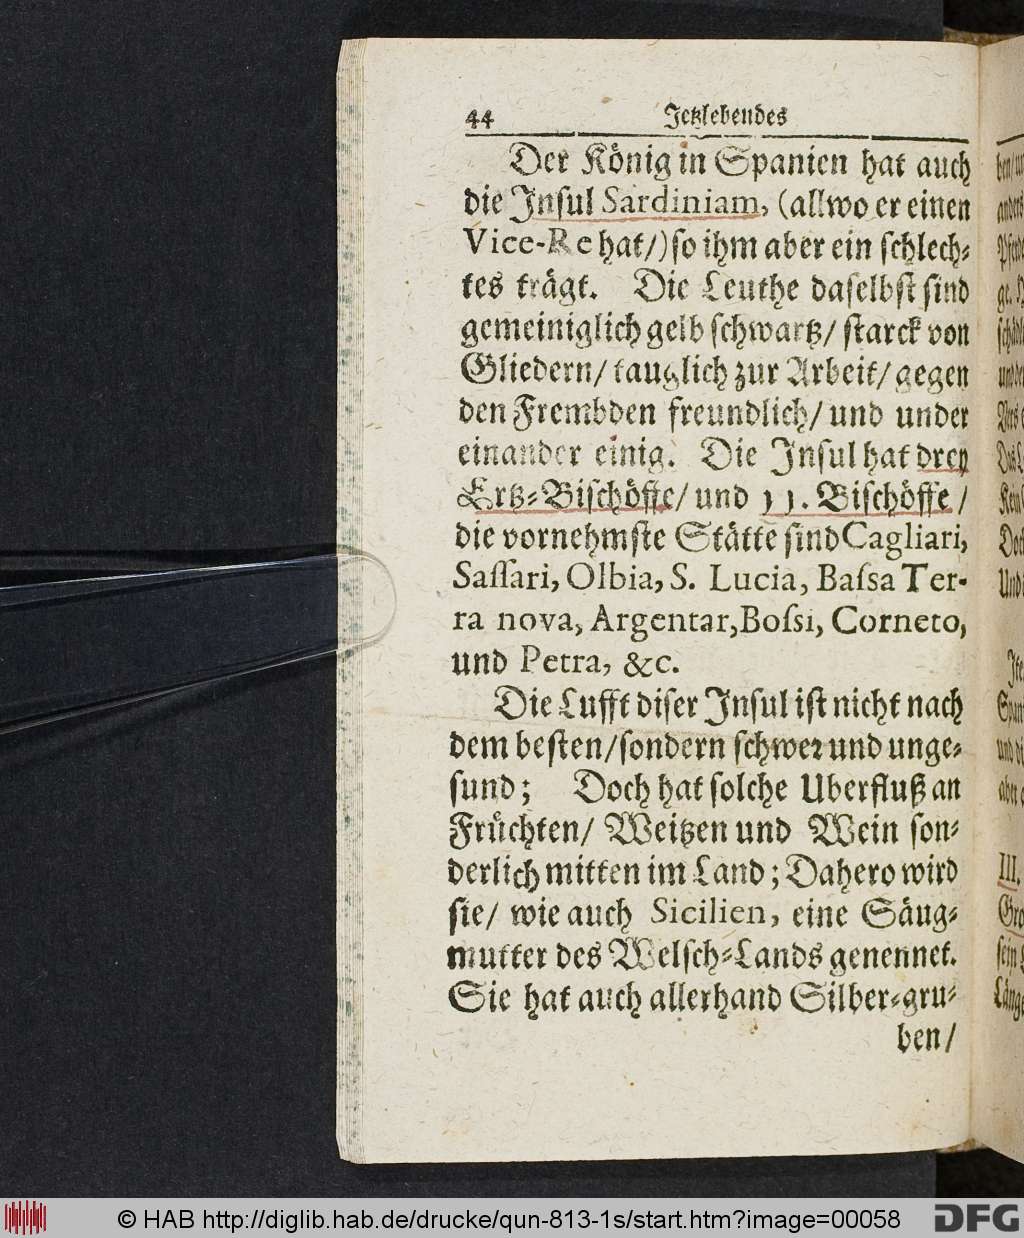 44 Jetzlebendes
Der König in Spanien hat auch
die Insul Sardiniam, (allwo er einen
Vice-Re hat/) so ihm aber ein schlech⸗
tes trägt. Die Leuthe daselbst sind
gemeiniglich gelb schwartz/ starck von
Gliedern/ tauglich zur Arbeit/ gegen
den Frembden freundlich/ und under
einander einig. Die Insul hat drey
Ertz⸗Bischöffe/ und 11. Bischöffe/
die vornehmste Stätte sind Cagliari,
Saſſari, Olbia, S. Lucia, Baſsa Ter-
ra nova, Argentar, Boſsi, Corneto,
und Petra, &c.
Die Lufft diser Insul ist nicht nach
dem besten/ sondern schwer und unge⸗
sund; Doch hat solche Uberfluß an
Früchten/ Weitzen und Wein son⸗
derlich mitten im Land; Dahero wird
sie/ wie auch Sicilien, eine Säug⸗
mutter des Welsch⸗Lands genennet.
Sie hat auch allerhand Silber⸗gru⸗
ben/
III.
© HAB http://diglib.hab.de/drucke/qun-813-1s/start.htm?image=00058
DFG